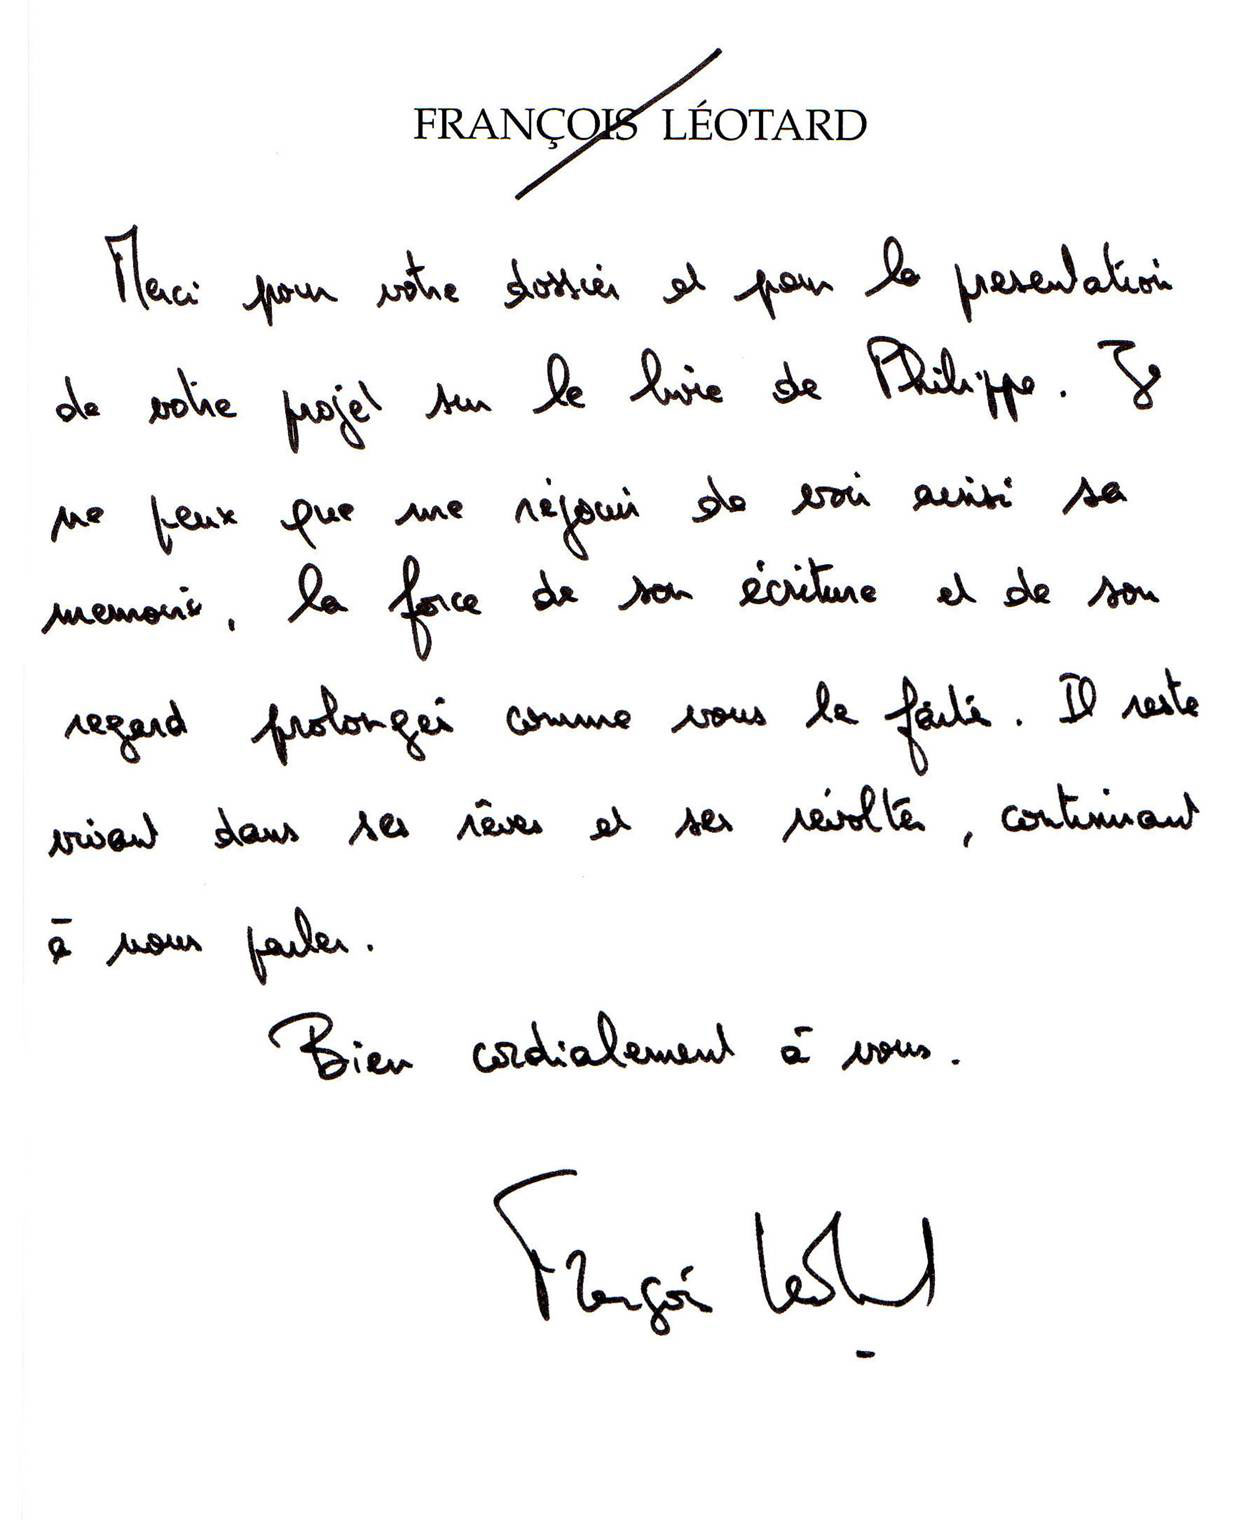 FRANÇOIS LÉOTARD
Merci pour votre dossier et pour la presentation
de votre projet sur le livre de Philippe. Je
ne peux que me réjouir de voir ainsi sa
memoire, la force de son écriture et de son
regard prolongés comme vous le faites. Il reste
vivant dans ses rêves et ses révoltes, continuant
à nous parler.
Bien cordialement à vous.
François Léotard